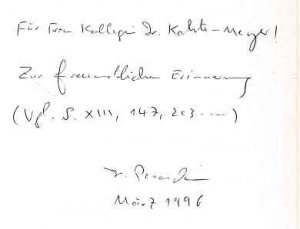 Für Frau Kollegin Dr. Kalste-Meyer!
Zur freundlichen Erinnerung
(Vgl. S. XIII, 147, 203 ....)
März 1996